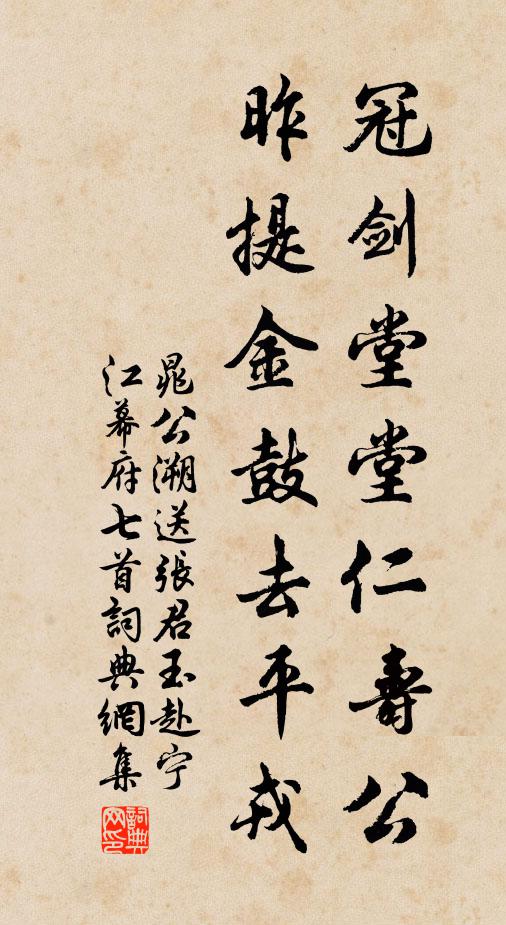 冠剑堂堂仁寿公
昨提金鼓去平戎
晁公溯送張君玉赴宁
江幕府七首詞典網集
詞典网印